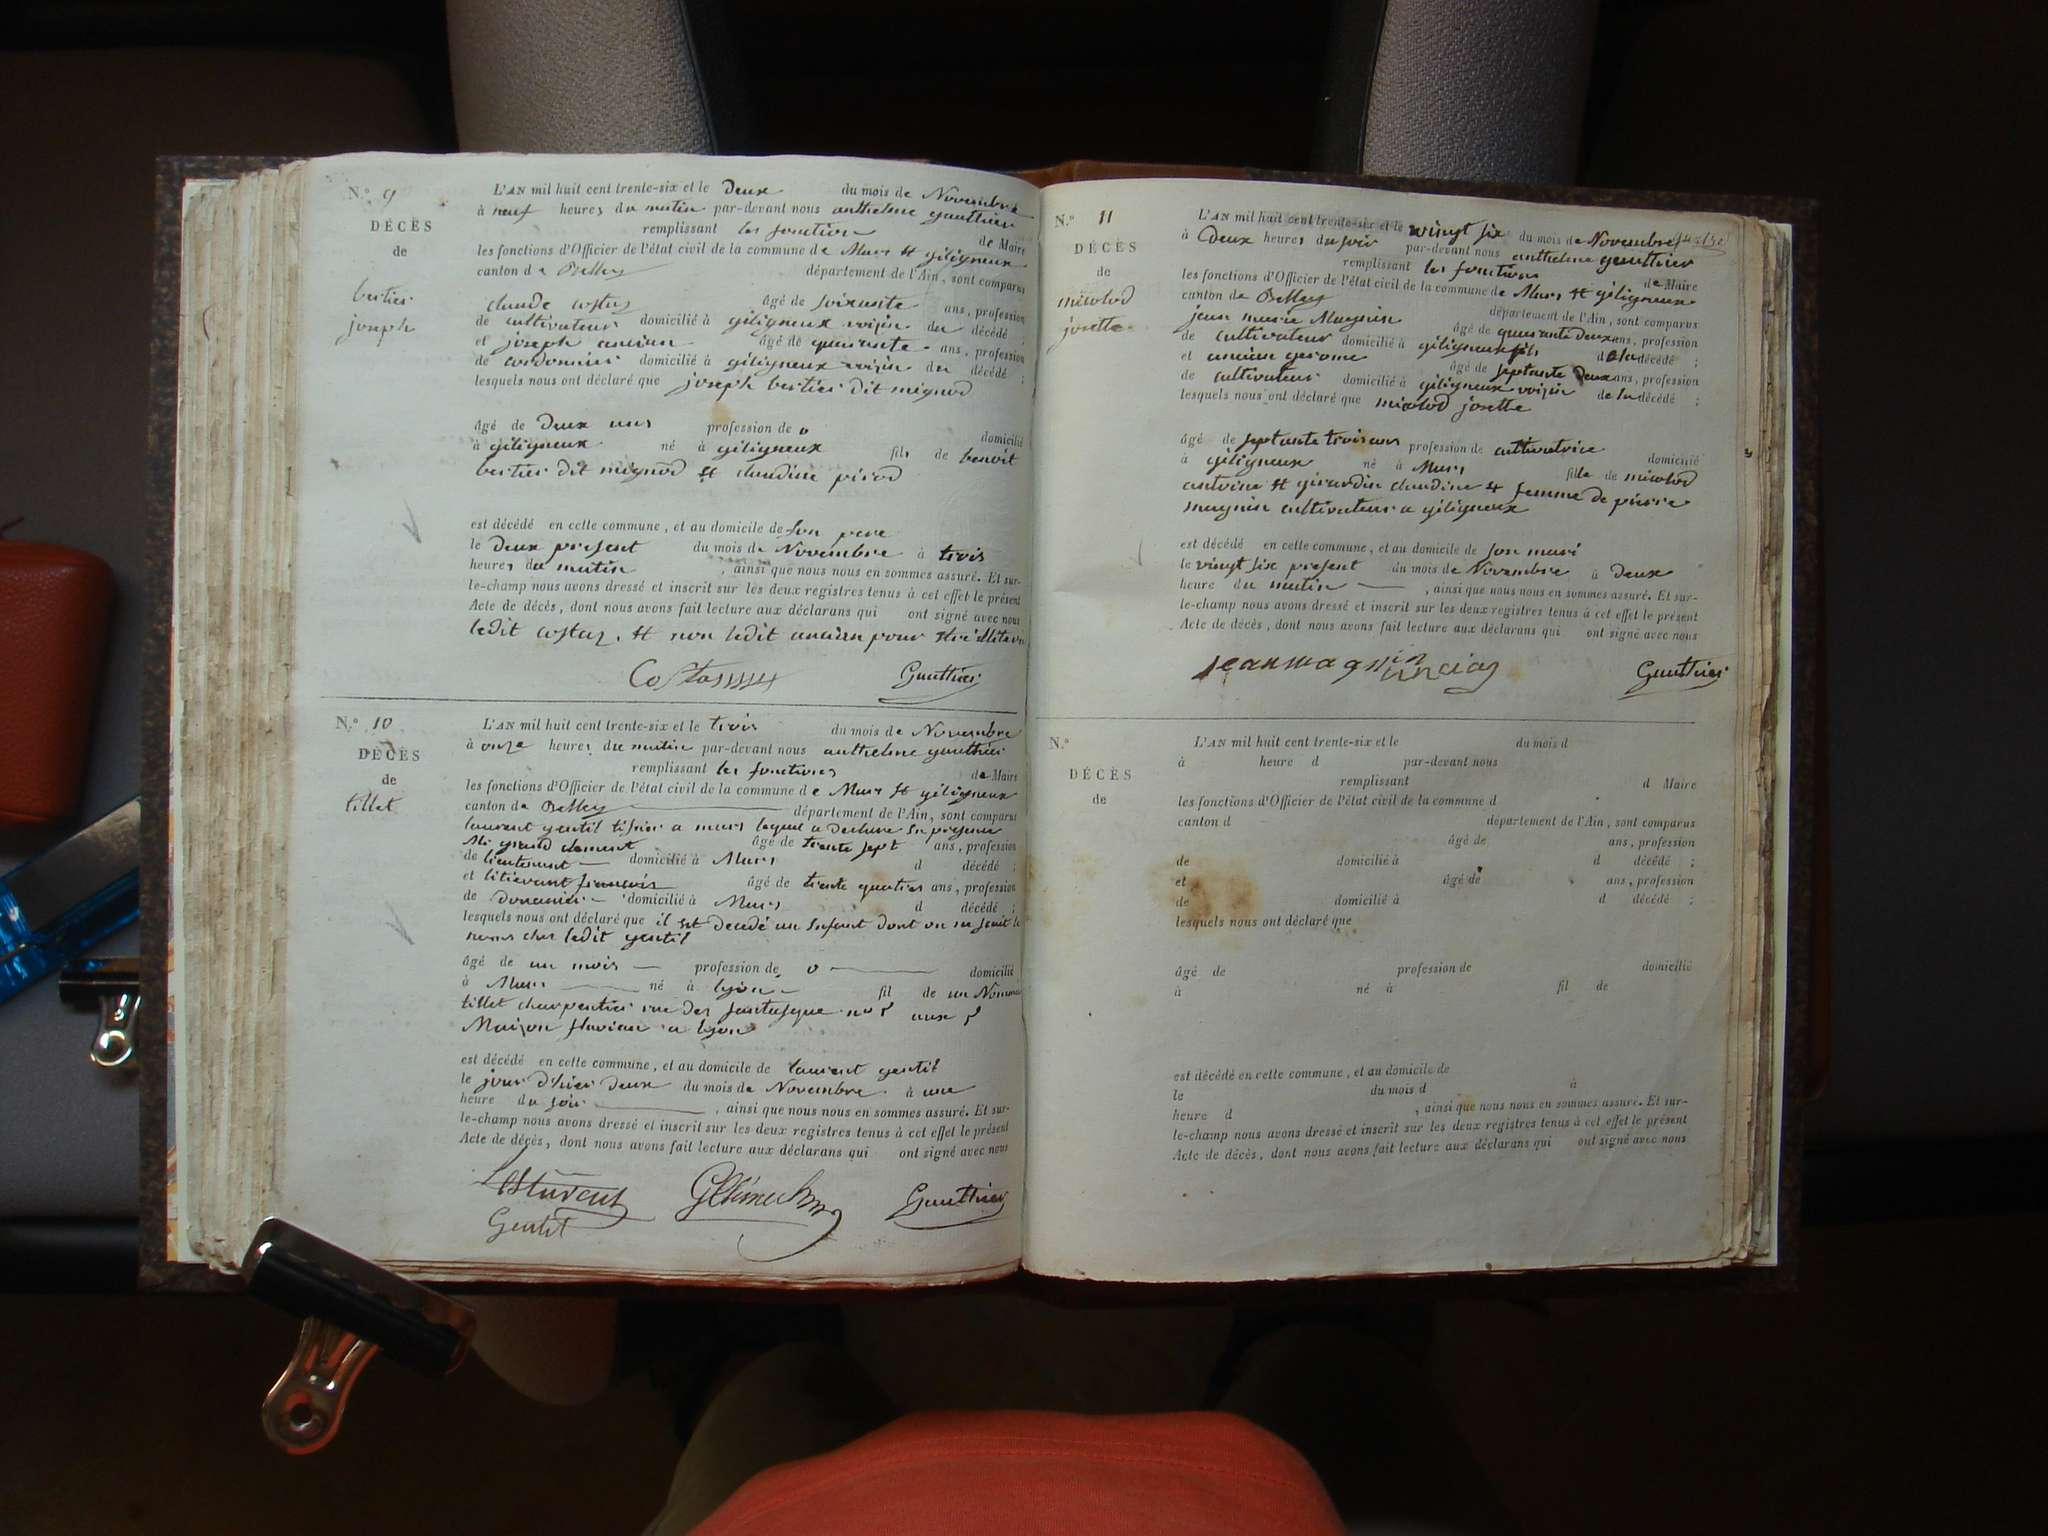 N.° 9
DÉCÈS
de
bertier
joseph
L'AN mil huit cent trente-six et le Deux du mois de Novembre
à neuf heures du matin par-devant nous anthelme gauthier
remplissant les fonction de Maire
les fonctions d'Officier de l'état civil de la commune de Murs et géligneux
canton de Belley département de l'Ain, sont comparus
claude costaz âgé de soixante ans, profession
de cultivateur domicilié à géligneux voisin du décédé ;
et joseph ancian âgé de quarante ans, profession
de cordonnier domicilié à géligneux voisin du décédé ;
lesquels nous ont déclaré que joseph bertier dit mignod
âgé de Deux ans profession de o domicilié
à géligneux né à géligneux fils de benoit
bertier dit mignod et claudine pirod
est décédé en cette commune, et au domicile de son pere
le Deux present du mois de Novembre à trois
heures du matin , ainsi que nous nous en sommes assuré. Et sur-
le-champ nous avons dressé et inscrit sur les deux registres tenus à cet effet le présent
Acte de décès, dont nous avons fait lecture aux déclarans qui ont signé avec nous
ledit costaz. et non ledit ancian pour
Costaz Gauthier
N.° 10
DÉCÈS
de
tillet
L'AN mil huit cent trente-six et le trois du mois de Novembre
à onze heures du matin par-devant nous anthelme gauthier
remplissant les fonctions de Maire
les fonctions d'Officier de l'état civil de la commune de Murs et géligneux
canton de Belley département de l'Ain, sont comparus
laurent gentil a murs lequel a declare en presence
grand clement âgé de trente sept ans, profession
de lieutenant domicilié à Murs d décédé ;
et françois âgé de trente quatres ans, profession
de Douanier domicilié à Murs d décédé ;
lesquels nous ont déclaré que il est decedé un enfant dont on ne sait le
noms ches ledit gentil
âgé de un mois profession de o domicilié
à Murs né à lyon fil de un Nommé
tillet charpentier rue des fantasque n° 5 aux 5
Maison fluvian a lyon
est décédé en cette commune, et au domicile de laurent gentil
le jour d'hier deux du mois de Novembre à une
heure du soir , ainsi que nous nous en sommes assuré. Et sur-
le-champ nous avons dressé et inscrit sur les deux registres tenus à cet effet le présent
Acte de décès, dont nous avons fait lecture aux déclarans qui ont signé avec nous
Gauthier
Gentil
N.° 11
DÉCÈS
de
miolod
josette
L'AN mil huit cent trente-six et le vingt six du mois de Novembre
à Deux heures du soir par-devant nous anthelme gauthier
remplissant les fonctions de Maire
les fonctions d'Officier de l'état civil de la commune de Murs et géligneux
canton de Belley département de l'Ain, sont comparus
jean marie Magnin âgé de quarante deux ans, profession
de cultivateur domicilié à géligneux fils de la décédé ;
et ancian gerome âgé de septante Deux ans, profession
de cultivateur domicilié à géligneux voisin de la décédé ;
lesquels nous ont déclaré que miolod josette
âgé de septante trois ans profession de cultivatrice domicilié
à géligneux né à Murs fille de miolod
antoine et girardin claudine et femme de pierre
magnin cultivateur a géligneux
est décédé en cette commune, et au domicile de son mari
le vingt six present du mois de Novembre à Deux
heure du matin , ainsi que nous nous en sommes assuré. Et sur-
le-champ nous avons dressé et inscrit sur les deux registres tenus à cet effet le présent
Acte de décès, dont nous avons fait lecture aux déclarans qui ont signé avec nous
jean magnin Gauthier
N.°
DÉCÈS
de
L'AN mil huit cent trente-six et le du mois d
à heure d par-devant nous
remplissant d Maire
les fonctions d'Officier de l'état civil de la commune d
canton d département de l'Ain, sont comparus
âgé de ans, profession
de domicilié à d décédé ;
et âgé de ans, profession
de domicilié à d décédé ;
lesquels nous ont déclaré que
âgé de profession de domicilié
à né à fil de
est décédé en cette commune, et au domicile de
le du mois d à
heure d , ainsi que nous nous en sommes assuré. Et sur-
le-champ nous avons dressé et inscrit sur les deux registres tenus à cet effet le présent
Acte de décès, dont nous avons fait lecture aux déclarans qui ont signé avec nous